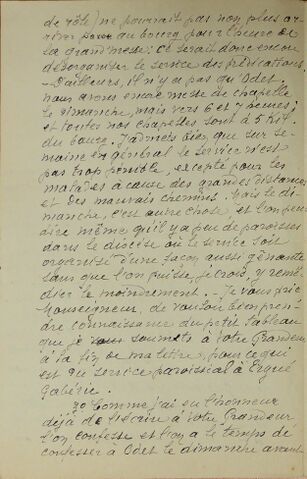 de rôle) ne pourrait pas non plus ar-
river au bourg pour l'heure de
la grand'messe: ce serait donc encore
désorganiser le service des prédications.
- D'ailleurs, il n'y a pas qu'Odet.
Nous avons encore messe de chapelle
le dimanche, mais vers 6 et 7 heures;
et toutes nos chapelles sont à 5 kil.
du bourg. J'admets bien que sur se-
maine en général le service n'est
pas trop pénible, excepté pour les
malades à cause des grandes distances
et des mauvais chemins. Mais le di-
manche, c'est autre chose, et l'on peut
dire même qu'il y a peu de paroisses
dans le diocèse où le service soit
organisé d'une façon aussi gênante
sans que l'on puisse, je crois, y remé-
dier le moindrement. - Je vous prie
Monseigneur, de vouloir bien pren-
dre connaissance du petit tableau
que je vous soumets à Votre Grandeur
à la fin de ma lettre, pour ce qui
est du service paroissial à Ergué
Gabéric.
3o Comme j'ai eu l'honneur
déjà de l'écrire à Votre Grandeur
l'on confesse et l'on a le temps de
confesser à Odet le dimanche avant